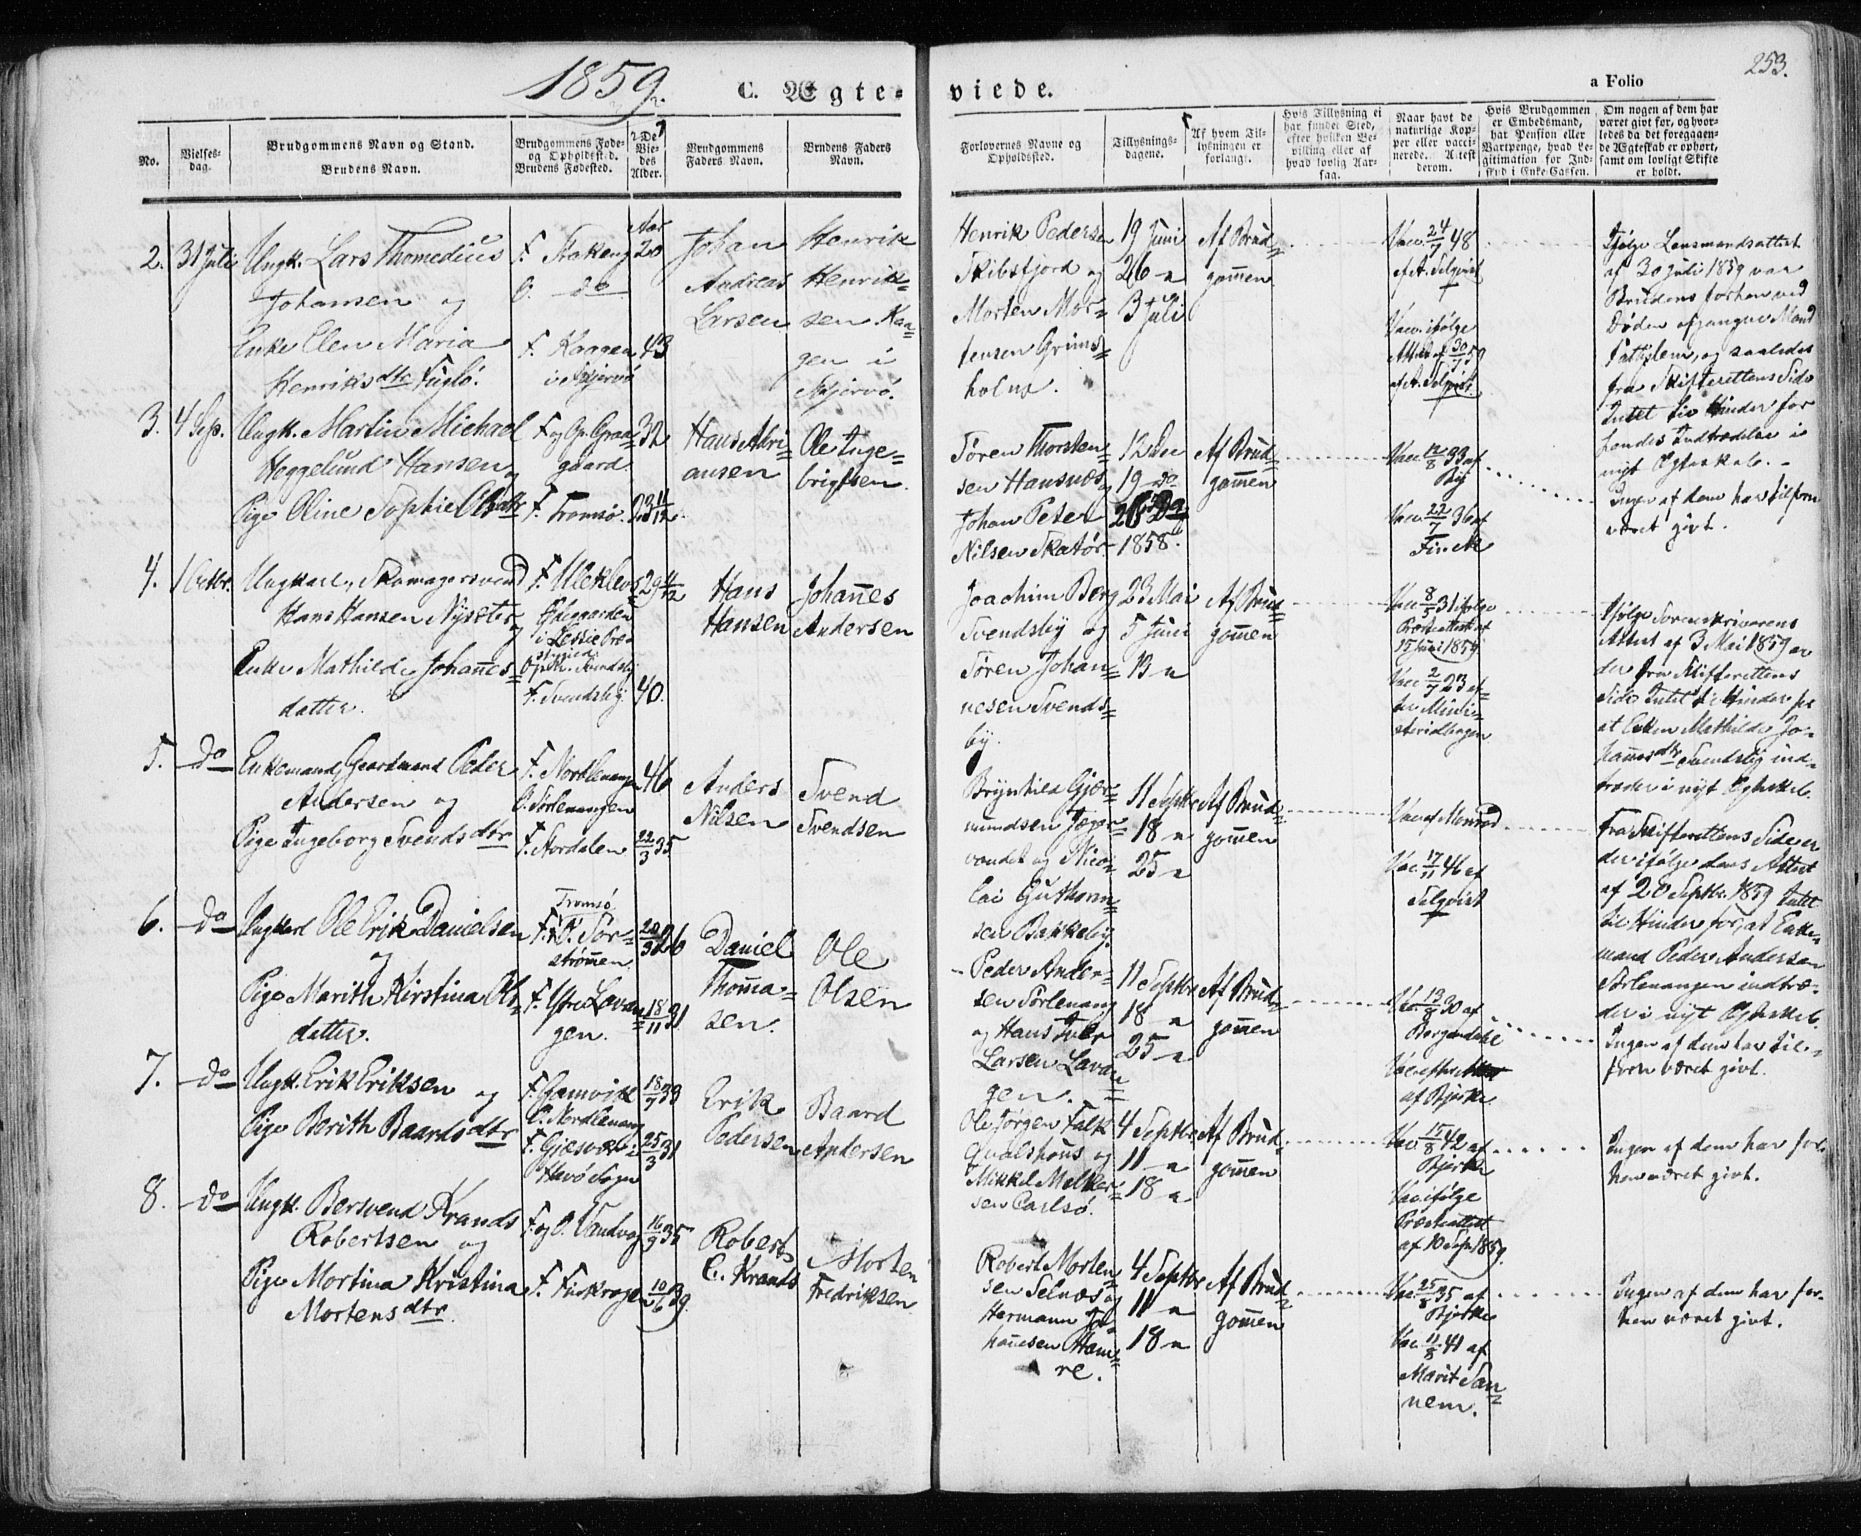 1859.
C. Ægte-
viede.
a Folio
253.
No.
Vielses-
dag.
Brudgommens Navn og Stand.
Brudens Navn.
Brudgommens Føde-
og Opholdssted.
Brudens Fødested.
De
Vie-
des
Alder.
Brudgommens
Faders Navn.
Brudens Faders
Navn.
Forlovernes Navne og
Opholdssted.
Tillysnings-
dagene.
Af hvem Til-
lysningen er
forlangt.
Hvis Tillysning ei
har fundet Sted,
efter hvilken Be-
villing eller af
hvad lovlig Aar-
sag.
Naar havt de
naturlige Kop-
per eller vacci-
nerede. Attest
derom.
Hvis Brudgommen
er Embedsmand,
har Pension eller
Vartpenge, hvad Le-
gitimation for Ind-
skud i Enke-Cassen.
Om nogen af dem har
været givt før, og hvor-
ledes da det foregaaen-
de Ægteskab er ophørt,
samt om lovligt Skifte
er holdt.
2. 31 Juli
Ungk. Lars Thomedius
Johansen og
Enke Elen Maria
Henriksdtr Fuglø.
F. Krakeng
O. do
F. Kaagen
i Skjervø
Aar
20
43
Johan
Andreas
Larsen
Henrik
Henrik=
sen Kaa=
gen i
Skjervø.
Henrik Pedersen
Skibsfjord og
Morten Mor=
tensen Grims=
holm.
19 Juni
26 -
3 Juli
Af Brud=
gommen
Vac. 24/7 48
af A. Selqvist
Vacc. ifølge
Attest af 30/7 59
af A. Selqvist
Ifølge Lensmandsattest
af 30 Juli 1859 var
Brudens forhen ved
Døden afgangne Mand
fattiglem, og saaledes
fra Skifterettens Side
Intet til Hinder for
hendes Indtrædelse i
nyt Ægteskab. -
3. 4 Sep.
Ungk. Martin Michael
Heggelund Hansen og
Pige Oline Sophie Olsdtr
F. og Op. Graa=
gaard.
F. Tromsø.
32
23 11/12.
Hans Adri=
ansen
Ole Inge=
brigtsen.
Søren Thorsten=
sen Hansnes og
Johan Peter
Nilsen Skatør
12 Dec
19 do
26 do
1858.
Af Brud=
gommen
Vac. 12/8 33 af
Vac. 22/7 36 af
Finck
Ingen af dem har tilforn
været givt.
4. 1 Octbr.
Ungkarl, Skomagersvend
Hans Hansen Nysæter og
Enke Mathilde Johannes=
datter.
F. Ulekleve
i Lessie Præ=
stegjeld
Op. Svendsby
F. Svendsby
29 4/12
40.
Hans
Hansen
Johannes
Andersen
Joachim Berg
Svendsby og
Søren Johan=
nesen Svends=
by.
23 Mai
5 Juni
13 -
Af Brud=
gommen
Vac. 8/5 31 ifølge
Præsteattest af
15 Juni 1859
Vac. 2/7 23 af=
Minis=
sterialbogen
Ifølge Sorenskriverens
Attest af 3 Mai 1859 er
der fra Skifterettens
Side Intet til Hinder for
at Enken Mathilde Jo=
hannesdtr Svendsby ind=
træder i nyt Ægteskab.
5. do
Enkemand, Gaardmand Peder
Andersen og
Pige Ingeborg Svendsdtr
F. Nordlenangen
O. Sørlenangen
F. Nordalen
46
22/3 35
Anders
Nilsen
Svend
Svendsen
Brynhild Gjær=
mundsen Jæger=
vandet og Nico=
lai Guthorm=
sen Bakkeby.
11 Septbr
18 -
25 -
Af Brud=
gommen
Vac. af Monrad
Vac. 17/11 46 af
Selqvist
Fra Skifterettens Side er
der ifølge dens Attest
af 20 Septbr. 1859 Intet
til Hinder for, at Enke=
mand Peder Andersen
Sørlenangen indtræ=
der i nyt Ægteskab.
6. do
Ungkarl Ole Erik Danielsen
og
Pige Marith Kirstina Ols=
datter.
Tromsø
F. & O. Sør=
strømen.
F. Ytre Lavan=
gen.
20/3 26
18/11 31
Daniel
Thoma=
sen.
Ole
Olsen
Peder Ander=
sen Sørlenang
og Hans Iver
Larsen Lavan=
gen.
11 Septbr
18 -
25 -
Af Brud=
gommen
Vac. 13/9 30 af
Borgendahl
Vac. efter Attest
af Bjerke
Ingen af dem har tilf-
forn været givt.
7. do
Ungk. Erik Eriksen og
Pige Berith Baardsdtr
F. Gamvik
O. Nordlenang
F. Gjesvær i
Havø Sogn
18/7 33
25/3 31
Erik
Pedersen
Baard
Andersen
Ole Jørgen Falk
Qualshaus og
Mikkel Melker=
sen Carlsø.
4 Septbr
11 -
18 -
Af Brud=
gommen
Vac. 15/8 42 af
Bjerke
Vac ifølge
Præsteattest
af 10 Sep. 1859.
Ingen af dem har for-
hen været givt.
8. do
Ungk. Bersvend Krands
Robertsen og
Pige Mortina Kristina
Mortensdtr.
F. og O. Vandvog
F. Finkroge
16/9 35
10/6 39.
Robert
C. Krands
Morten
Fredriksen
Robert Morten=
sen Selnæs og
Hermann Jo=
hannesen Ham=
re.
4 Septbr
11 -
18 -
Af Brud=
gommen
Vac. 25/8 35 af
Bjerke
Vac. 11/8 41 af
Marit San=
nem.
Ingen af dem har for-
hen været givt.